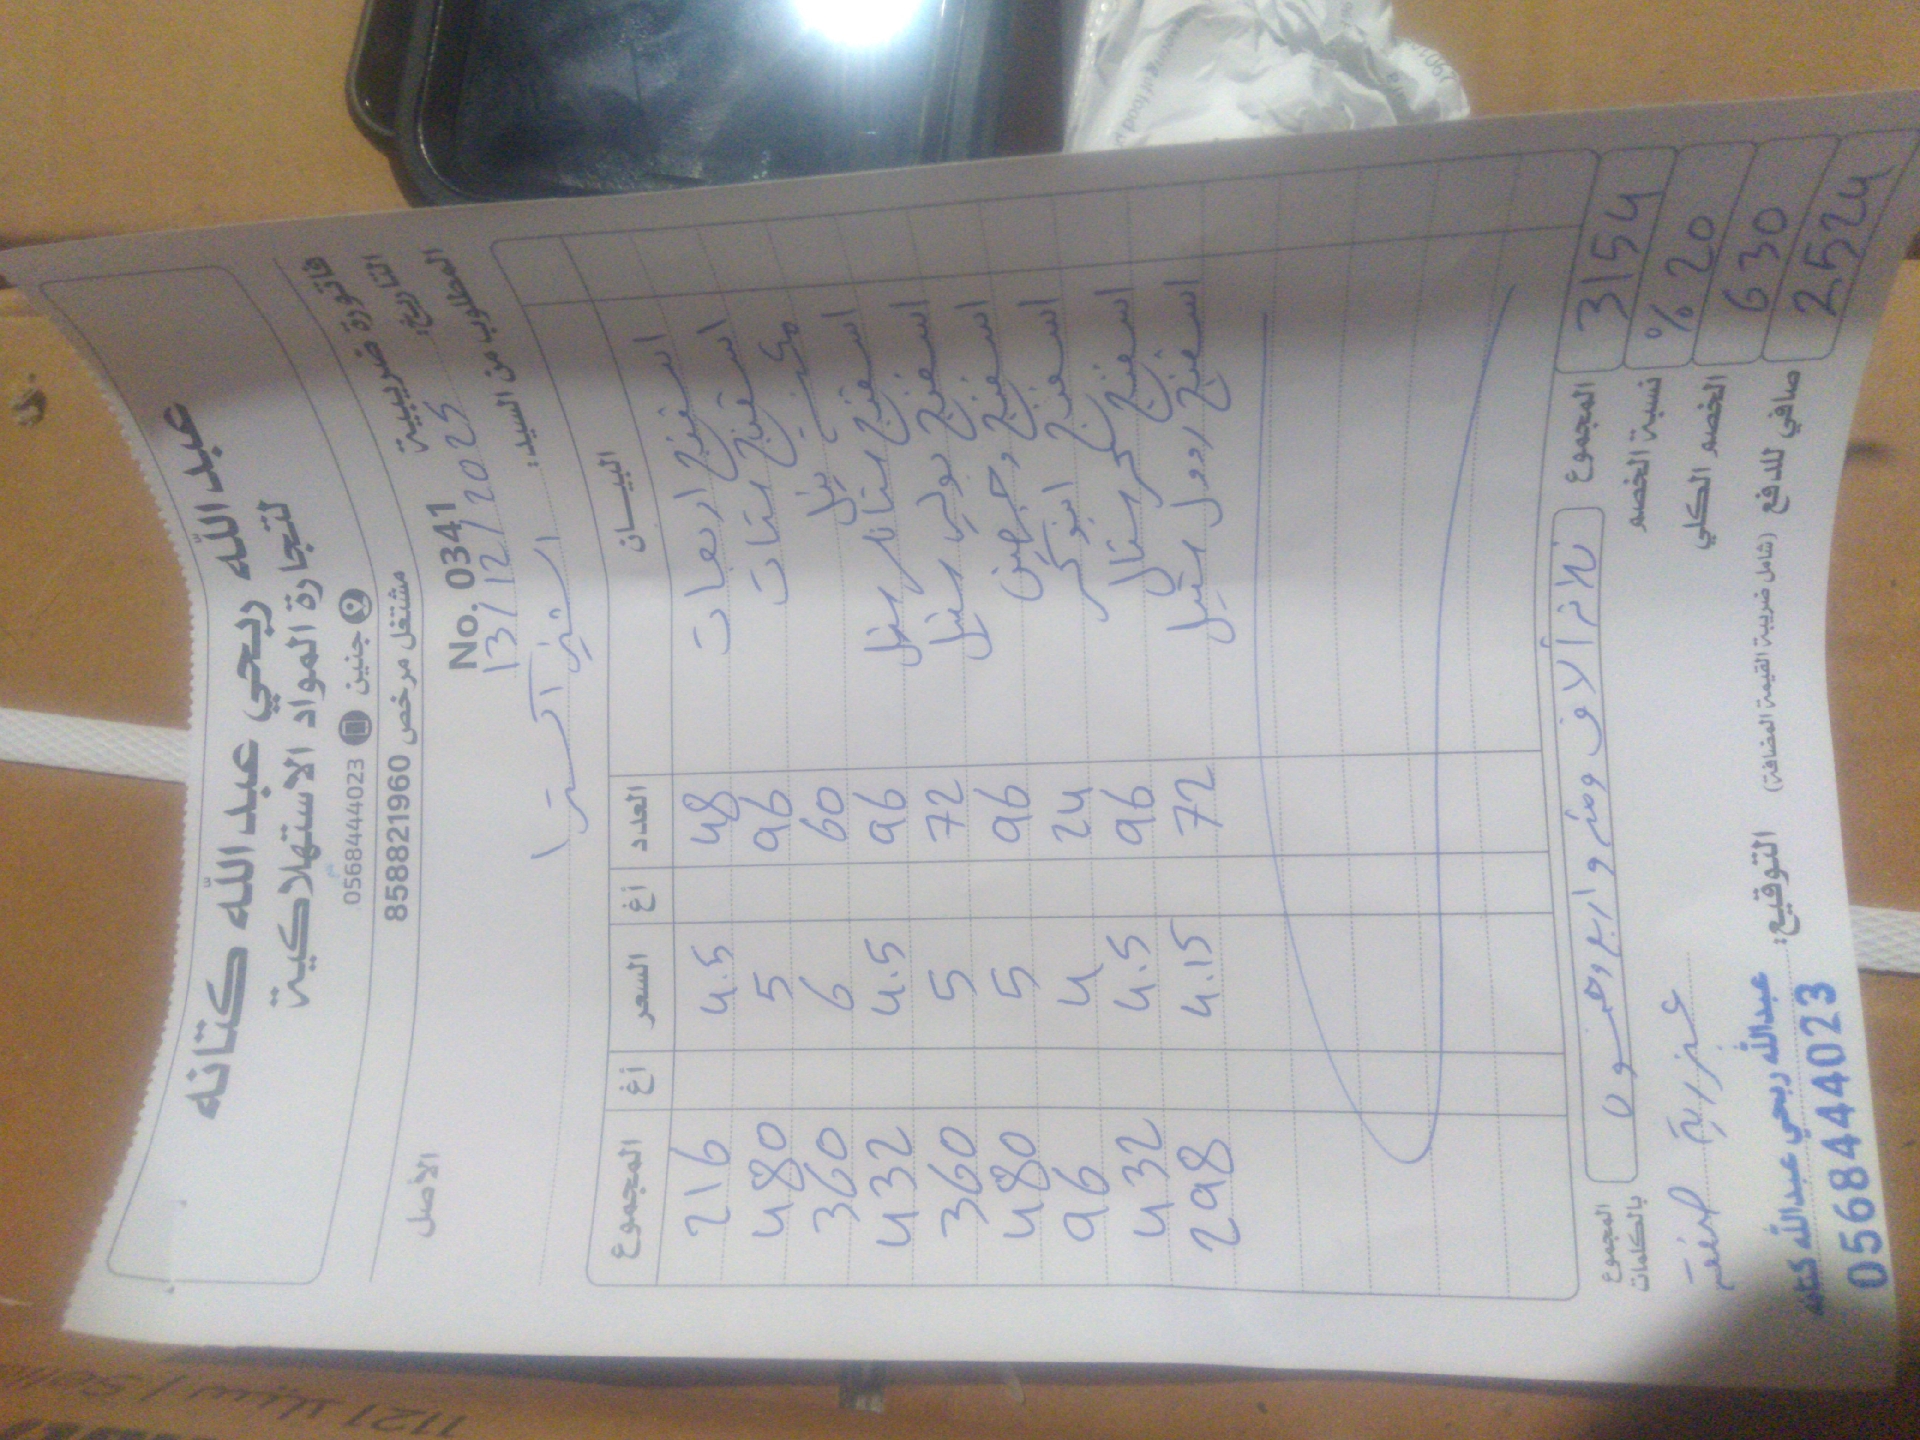 عبد الله ربحي عبد الله كتانه
لتجارة المواد الاستهلاكية
جنين 0568444023
مشتغل مرخص 858821960
فاتورة ضريبية No. 0341 الأصل
التاريخ: 13/12/2025
المطلوب من السيد: اكسترا
البيـــان العدد أغ السعر أغ المجموع
اسفنج اربعات 48 4.5 216
اسفنج ستات 96 5 480
60 6 360
اسفنج ستانلس ستيل 96 4.5 432
اسفنج بولي ستيل 72 5 360
اسفنج وجهين 96 5 480
اسفنج 24 4 96
اسفنج كريستال 96 4.5 432
اسفنج رول ستيل 72 4.15 298
المجموع 3154
المجموع بالكلمات ثلاثة ألاف ومئة واربع وخمسون
نسبة الخصم % 20
الخصم الكلي 630
صافي للدفع 2524
(شامل ضريبة القيمة المضافة)
التوقيع:
عبدالله ربحي عبدالله كتانه
0568444023
1121